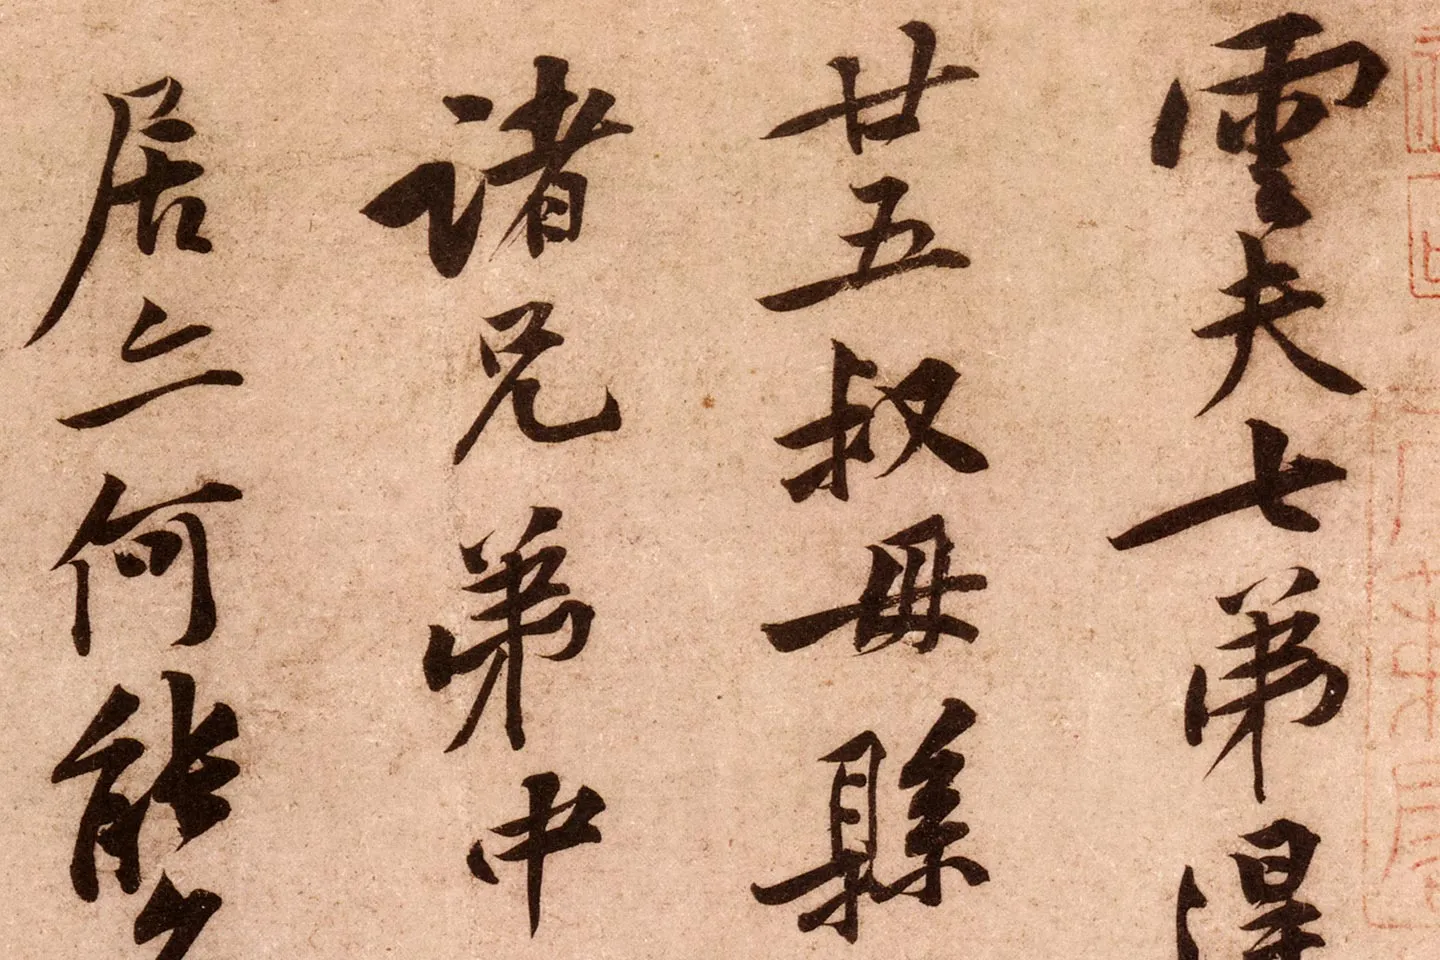 雲夫七弟得
廿五叔母縣
諸兄弟中
居亦何能